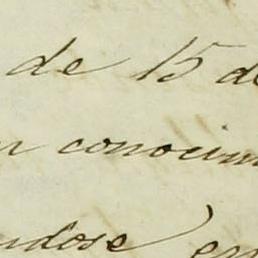 de 15 de
n conocim
ndose en